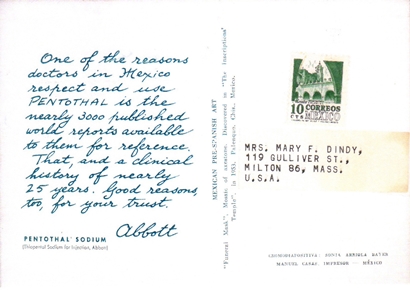 One of the reasons
doctors in Mexico
respect and use
PENTOTHAL is the
nearly 3000 published
world reports available
to them for reference.
That, and a clinical
history of nearly
25 years. Good reasons,
too, for your trust.
Abbott
PENTOTHAL® SODIUM
(Thiopental Sodium for Injection, Abbott)
MEXICAN PRE-SPANISH ART
"Funeral Mask". Mosaic of Discovered in "The Inscriptions'
Temple", in 1952. Palenque, Chis., Mexico.
10 CORREOS
CTS MEXICO
MRS. MARY F. DINDY,
119 GULLIVER ST.,
MILTON 86, MASS.
U.S.A.
MANUEL CASAS, IMPRESOR — MÉXICO